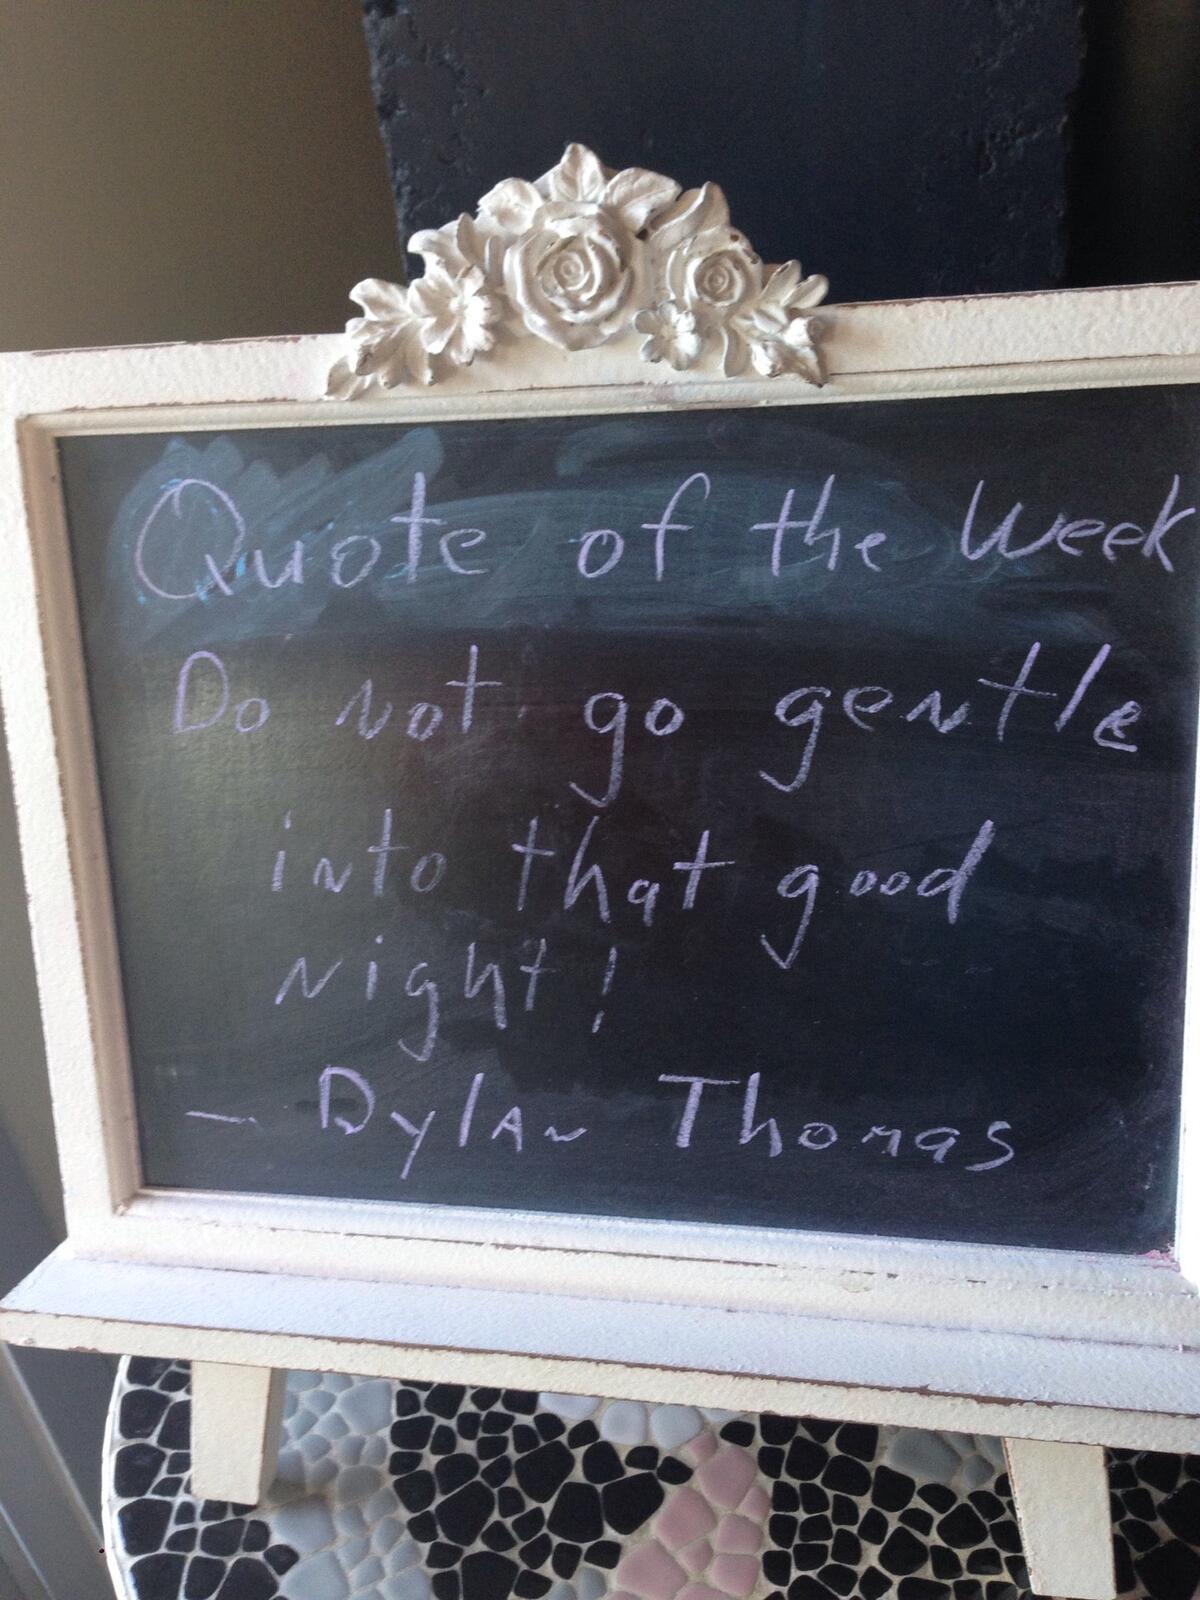 Quote of the Week
Do not go gentle
into that good
night!
- Dylan Thomas